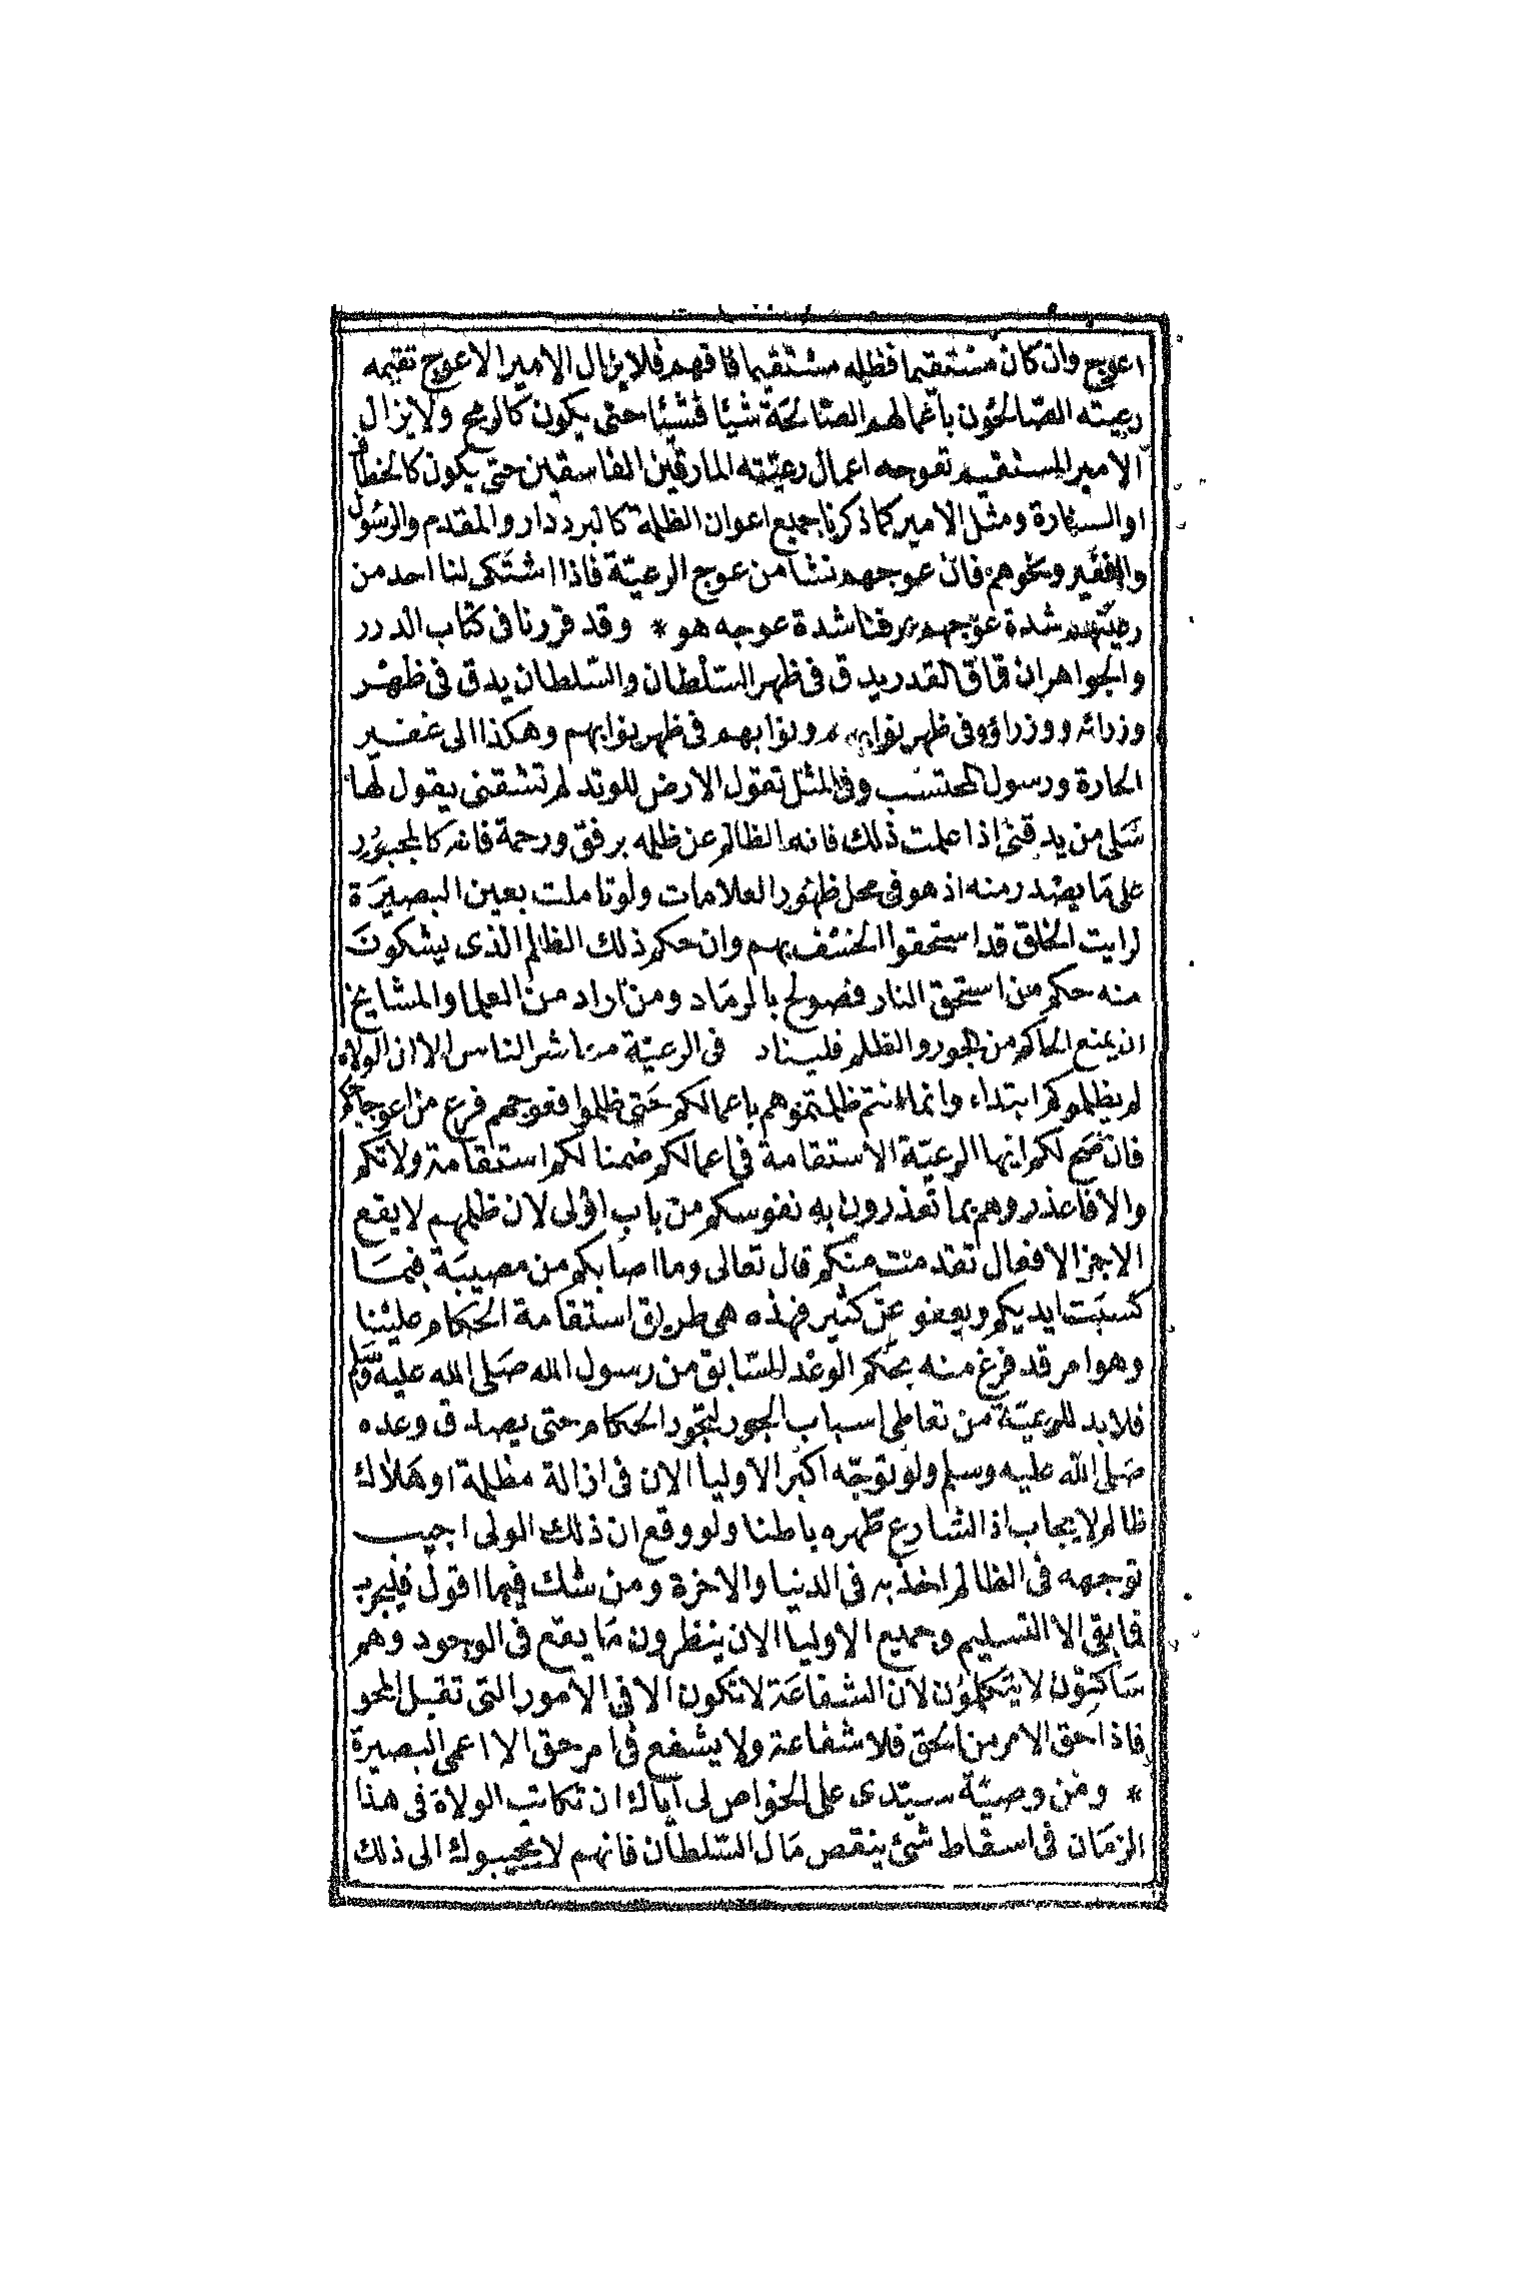 اعوج وان كان مستقيما فظله مستقيما فافهم فلا يزال الامير الاعوج تقيمه
رعيته الصّالحون باعمالهم الصّالحَة شيًا فشيًا حتى يكون كالرمح ولا يزال
الامير المستقيم تعوجه اعمال رعيّته المارقين الفاسقين حتى يكون كالخطاف
او السنارة ومثل الامير كما ذكرنا جميع اعوان الظلمة كالبرددار والمقدم والرسول
والغفير ونحوهم فان عوجهم نشا من عوج الرعيّة فاذا اشتكى لنا احد من
رعيّتهم شدة عوجهم عرفنا شدة عوجه هو * وقد قررنا فى كتاب الدرر
والجواهر ان قاق القدر يدق فى ظهر السّلطان والسّلطان يدق فى ظهر
وزرائه ووزراؤه فى ظهر نوابهم ونوابهم فى ظهر نوابهم وهكذا الى غفير
الحارة ورسول المحتسب وفى المثل تقول الارض للوتد لم تشقنى يقول لها
سَلى من يدقنى اذا علمت ذلك فانه الظالم عن ظلمه برفق ورحمة فانه كالمجبُور
على مَا يصدر منه اذ هو فى محل ظهور العلامات ولو تاملت بعين البصيرَة
لرايت الخلق قد استحقوا الخسف بهم وان حكم ذلك الظالم الذى يشكونَ
منه حكم من استحق النار فصولح بالرمَاد ومن اراد من العلما والمشايخ
ان يمنع الحاكم من الجور والظلم فليناد فى الرعيّة معاشر الناس الا ان الولاة
لم يظلموكم ابتداء وانما انتم ظلمتموهم باعمالكم حَتى ظلموا فعوجهم فرع من اعوجاجكم
فان صَح لكم ايها الرعيّة الاستقامة فى اعمالكم ضمنا لكم استقامة ولاتكم
والا فاعذروهم بما تعذرون به نفوسكم من باب اولى لان ظلمهم لا يقع
الاجزا لافعال تقدمت منكم قال تعالى وما اصابكم من مصيبَة فبمَا
كسبَت ايديكم ويعفو عن كثير فهذه هى طريق استقامة الحكام علينا
وهو امر قد فرغ منه بحكم الوعد السّابق من رسول الله صَلى الله عليه وسَّلم
فلا بد للرعيّة من تعاطى اسباب الجور لتجور الحكام حتى يصدق وعده
صَلى الله عليه وسلم ولو توجّه اكبر الاوليا الان فى ازالة مظلمة او هَلاك
ظالم لا يجاب اذ الشارع ظهره باطنا ولو وقع ان ذلك الولى اجيب
توجهه فى الظالم اخذ به فى الدنيا والاخرة ومن شك فيما اقول فليجرب
فما بقى الا التسليم وجميع الاوليا الان ينظرون مَا يقع فى الوجود وهم
سَاكتون لا يتكلمون لان الشفاعَة لا تكون الا فى الامور التى تقبل المحو
فاذا حق الامر من الحق فلا شفاعة ولا يشفع فى امر حق الا اعمى البصيرة
* ومن وصيّة سيّدى على الخواص لى اياك ان تكاتب الولاة فى هذا
الزمَان فى اسقاط شئ ينقص مَال السّلطان فانهم لا يجيبوك الى ذلك